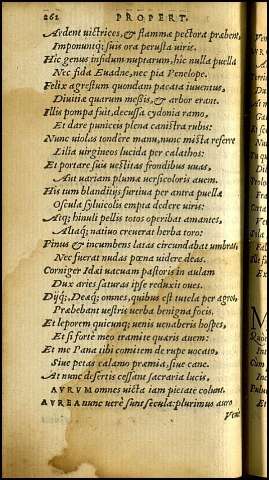 262 PROPERT.
Ardent uictrices, & flammæ pectora præbent,
Imponuntq; suis ora perusta uiris.
Hic genus infidum nuptarum, hic nulla puella
Nec fida Euadne, nec pia Penelope.
Felix agrestum quondam pacata iuuentus,
Diuitiæ quarum messis, & arbor erant.
Illis pompa fuit, decussa cydonia ramo,
Et dare puniceis plena canistra rubis:
Nunc uiolas tondere manu, nunc mista referre
Lilia uirgineos lucida per calathos:
Et portare suis uestitas frondibus uuas,
Aut uariam plumæ uersicoloris auem.
His tum blanditijs furtiua per antra puellæ
Oscula syluicolis empta dedere uiris:
Atq; hinuli pellis totos operibat amantes,
Altaq; natiuo creuerat herba toro:
Pinus & incumbens latas circundabat umbras,
Nec fuerat nudas pœna uidere deas.
Corniger Idæi uacuam pastoris in aulam
Dux aries saturas ipse reduxit oues.
Dijq;, Deæq; omnes, quibus est tutela per agros,
Præbebant uestris uerba benigna focis.
Et leporem quicunq; uenis uenaberis hospes,
Et si forte meo tramite quæris auem:
Et me Pana tibi comitem de rupe uocato,
Siue petas calamo præmia, siue cane.
At nunc desertis cessant sacraria lucis,
AVRVM omnes uicta iam pietate colunt.
AVREA nunc uerè sunt secula: plurimus auro
Veni